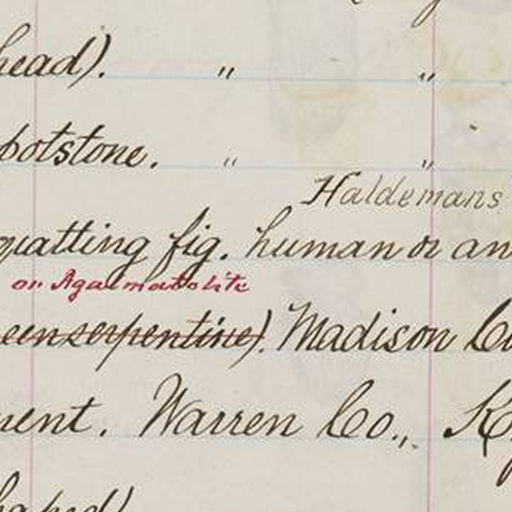 head). " "
potstone. " "
Haldemans
quatting fig. human or an
or Agalmatolite
een serpentine). Madison Co
ment. Warren Co., K
haped)